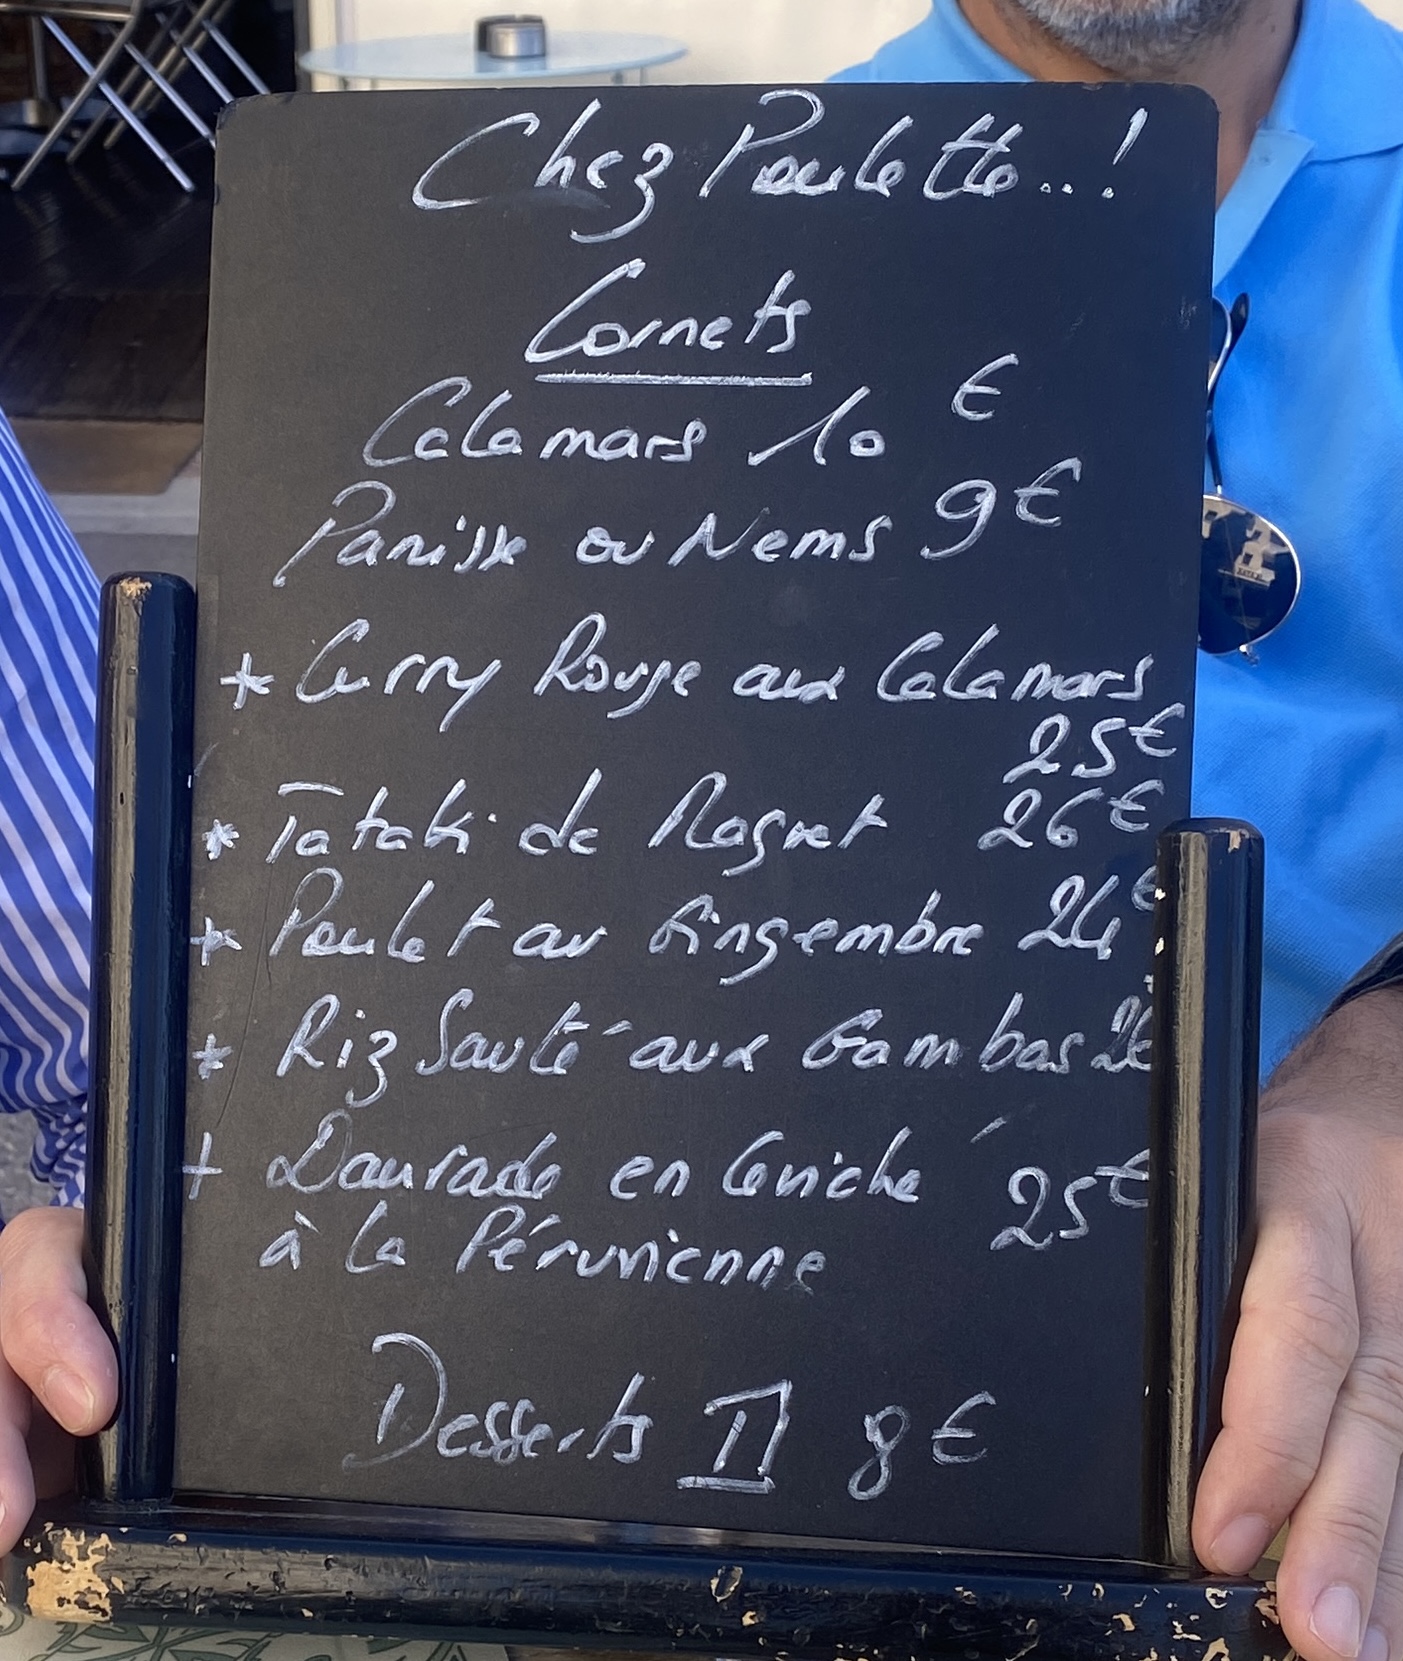 Chez Poulette...!
Cornets
Calamars 10 €
Panisse ou Nems 9€
* Curry Rouge aux Calamars
25€
* Tataki de Magret 26€
* Poulet au Gingembre 24€
* Riz Sauté aux Gambas
+ Daurade en Ceviché 25€
à la Péruvienne
Desserts 8€